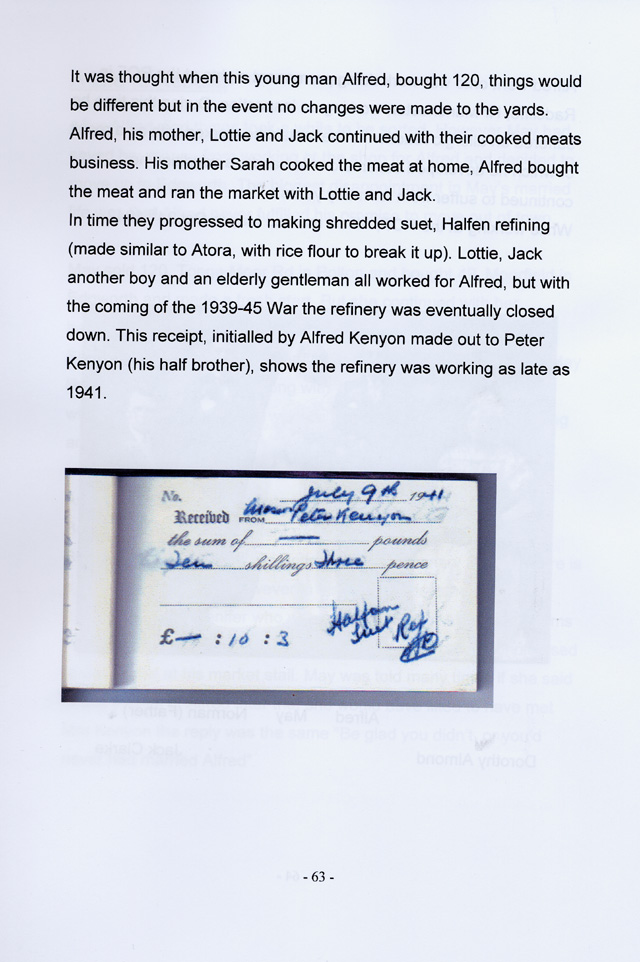 It was thought when this young man Alfred, bought 120, things would
be different but in the event no changes were made to the yards.
Alfred, his mother, Lottie and Jack continued with their cooked meats
business. His mother Sarah cooked the meat at home, Alfred bought
the meat and ran the market with Lottie and Jack.
In time they progressed to making shredded suet, Halfen refining
(made similar to Atora, with rice flour to break it up). Lottie, Jack
another boy and an elderly gentleman all worked for Alfred, but with
the coming of the 1939-45 War the refinery was eventually closed
down. This receipt, initialled by Alfred Kenyon made out to Peter
Kenyon (his half brother), shows the refinery was working as late as
1941.
No. July 9th 1941
Received FROM Peter Kenyon
the sum of — pounds
Ten shillings Three pence
£ — : 10 : 3
Suet Ref
- 63 -